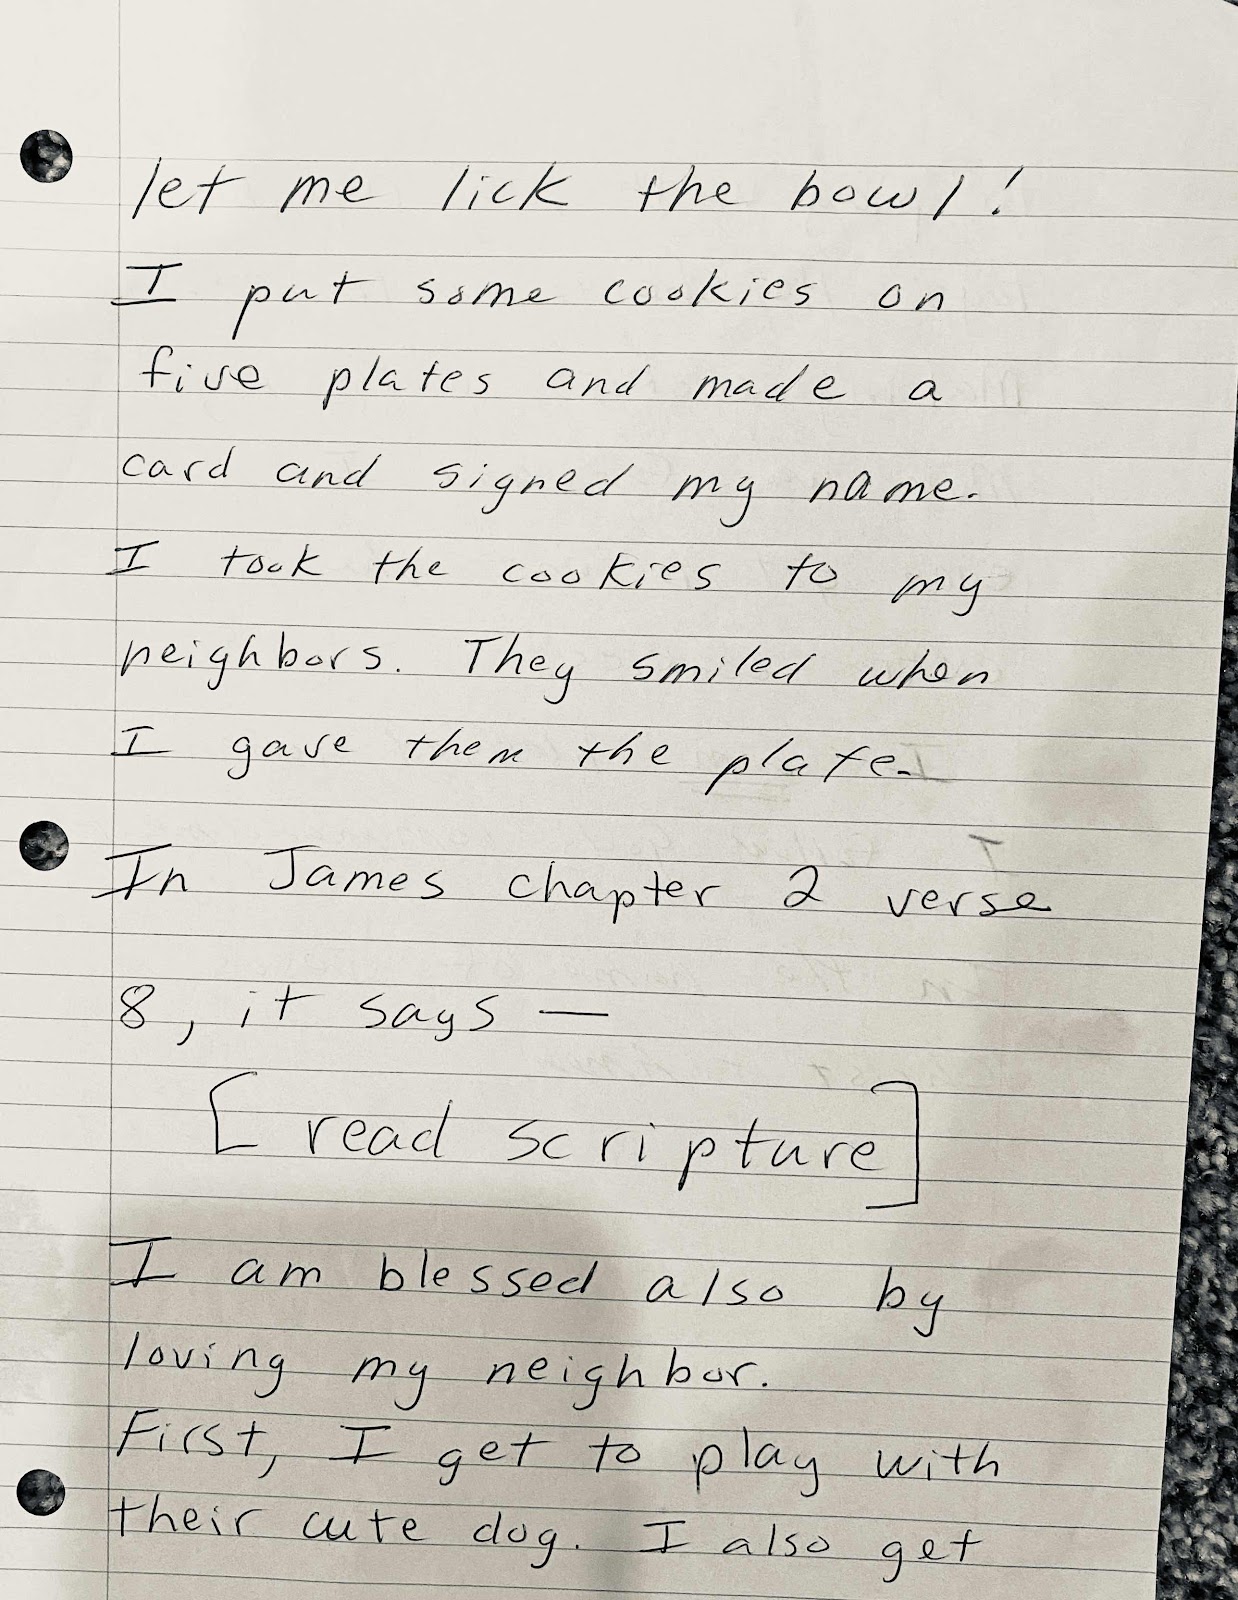 let me lick the bowl!
I put some cookies on
five plates and made a
card and signed my name.
I took the cookies to my
neighbors. They smiled when
I gave them the plate.
In James chapter 2 verse
8, it says —
[read scripture]
I am blessed also by
loving my neighbor.
First, I get to play with
their cute dog. I also get